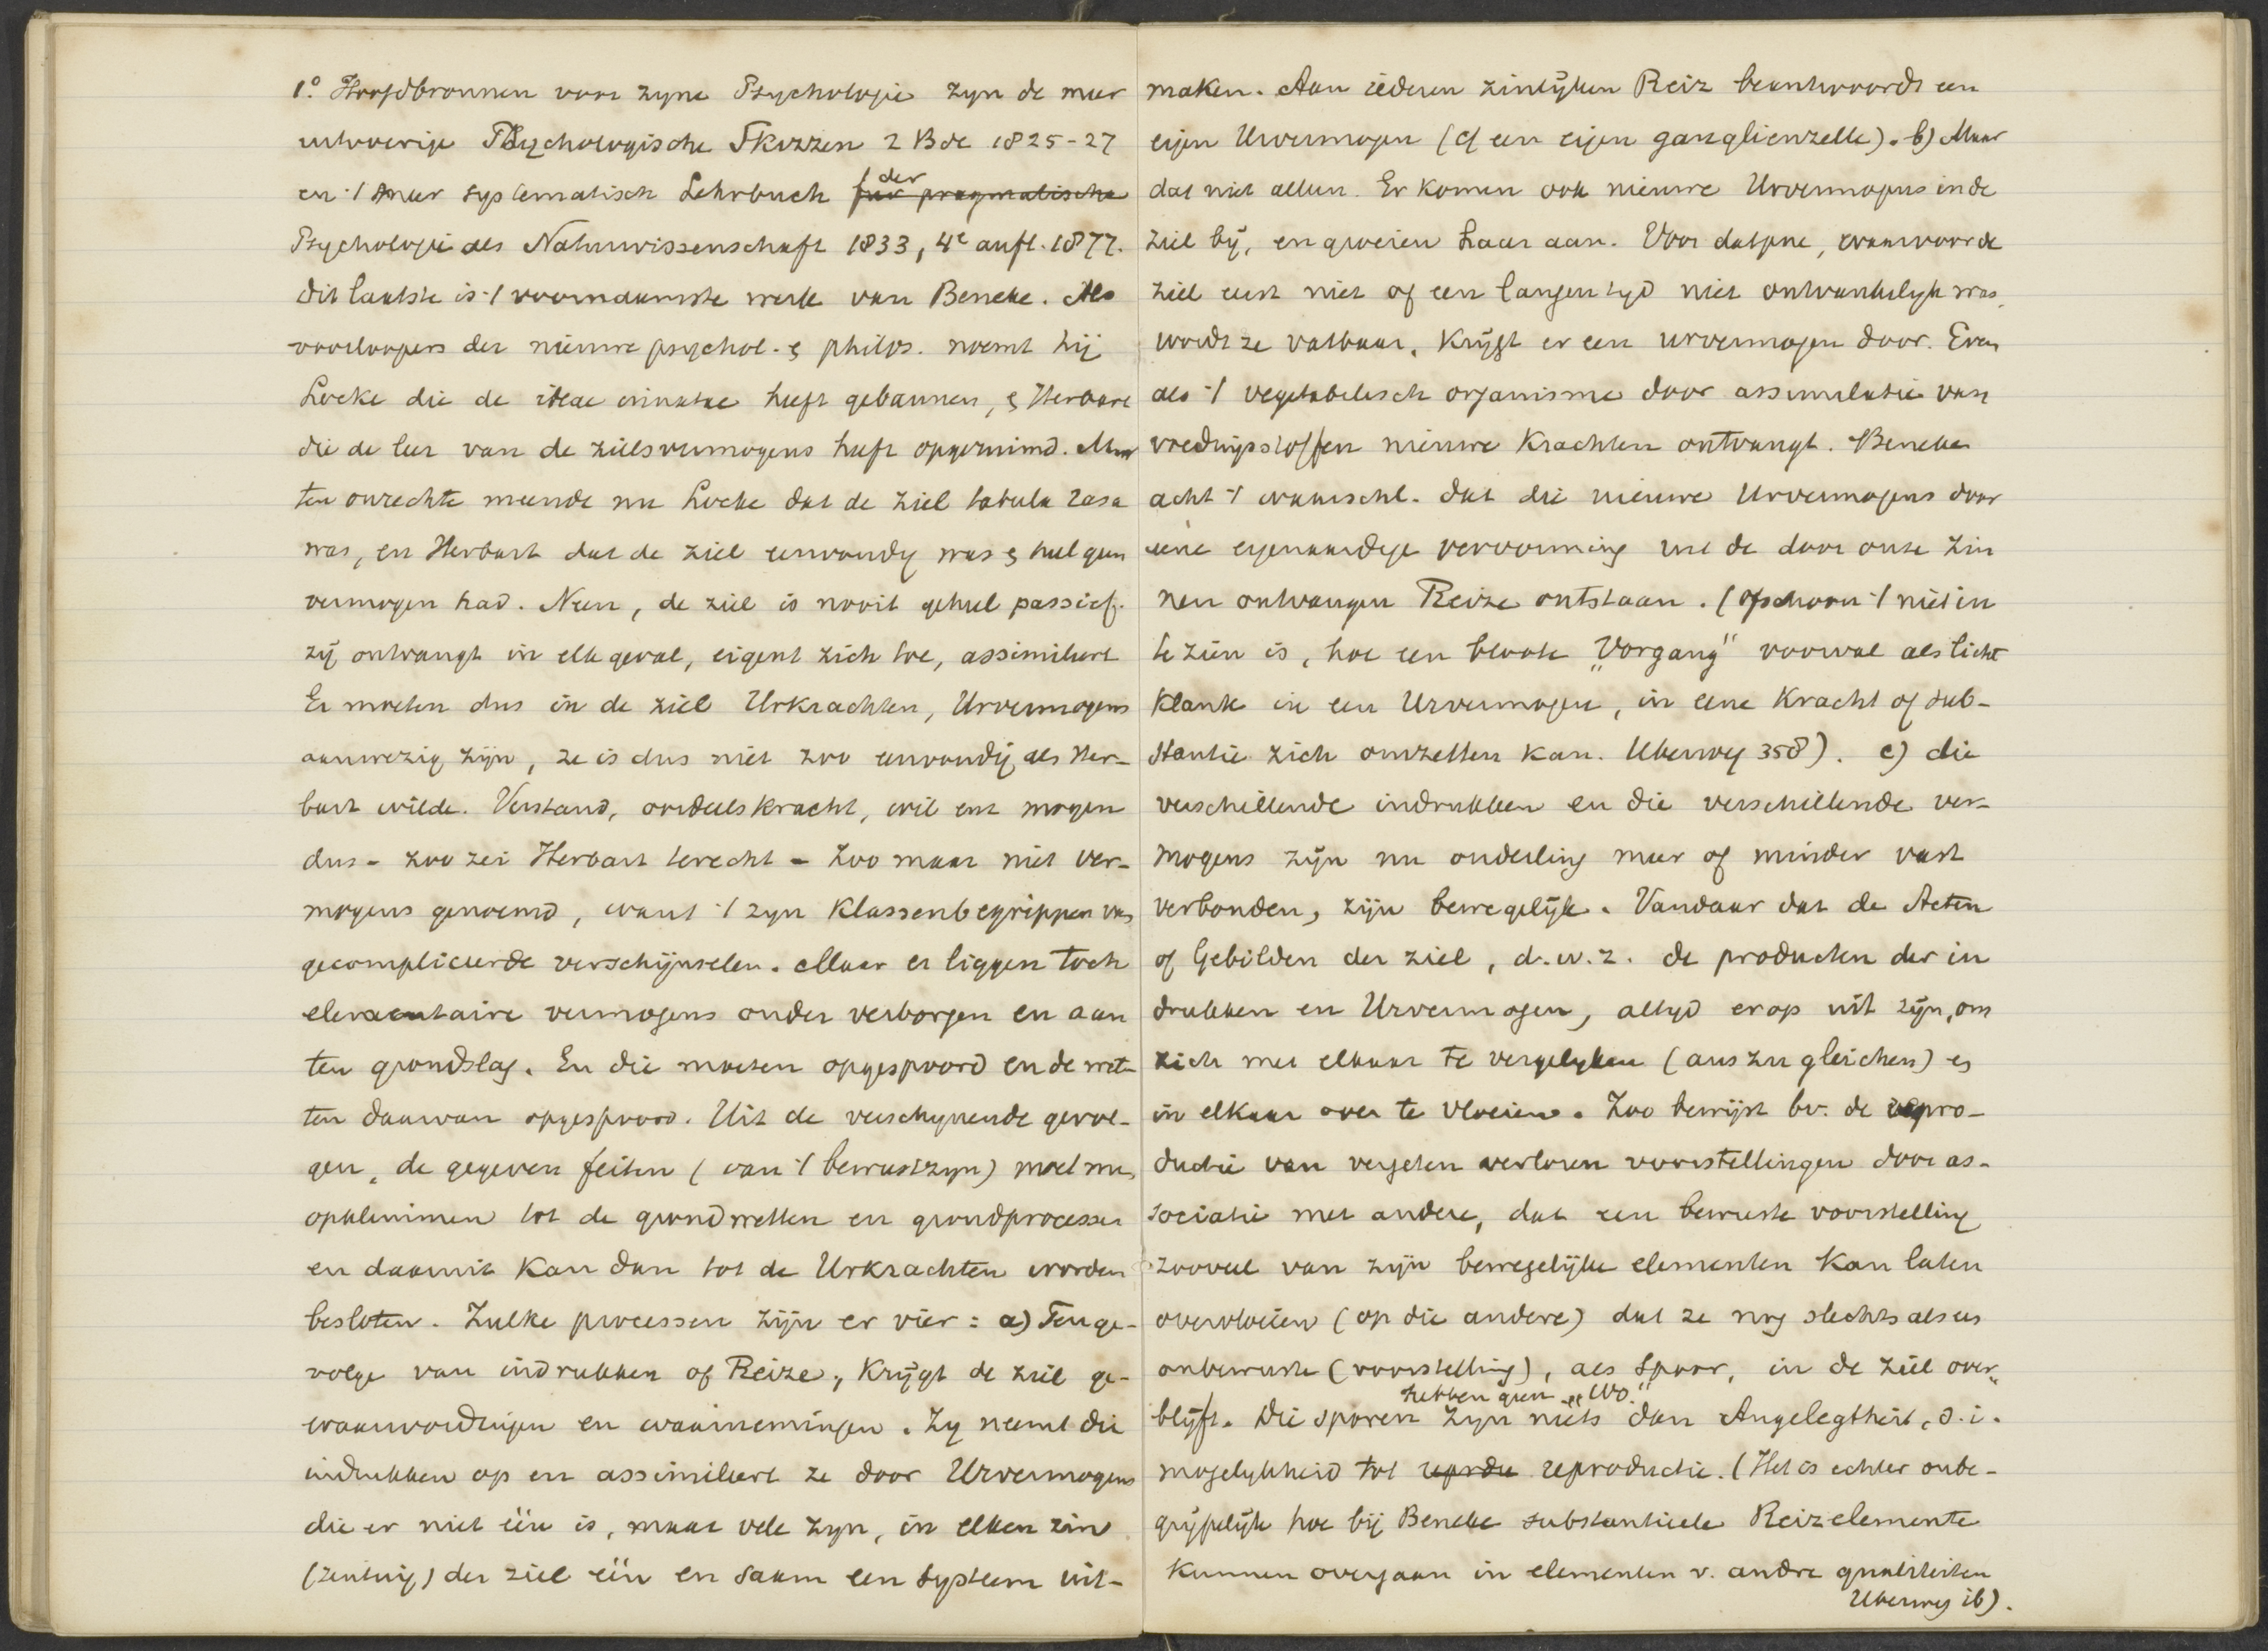 1.º Hoofdbronnen voor zyne Psychologie zyn de meer
uitvoerige Psychologische Skizzen 2 Bde 1825-27
en 't meer systematisch Lehrbuch der für pragmatische
Psychologie als Naturwissenschaft 1833, 4e aufl. 1877.
dit laatste is 't voornaamste werk van Beneke. Als
voorloopers der nieuwe psychol. & philos. noemt hij
Locke die de ideae innatae heeft gebannen, & Herbart
die de leer van de zielsvermogens heeft opgeruimd. Maar
ten onrechte meende nu Locke dat de ziel tabula rasa
was, en Herbart dat de ziel eenvoudig was & heel geen
vermogen had. Neen, de ziel is nooit geheel passief.
zij ontvangt in elk geval, eigent zich toe, assimileert
Er moeten dus in de ziel Urkrachten, Urvermogens
aanwezig zijn, ze is dus niet zoo eenvoudig als Her-
bart wilde. Verstand, oordeelskracht, wil enz mogen
dus - zoo zei Herbart terecht - zoo maar niet ver-
mogens genoemd, want 't zyn Klassenbegrippen van
gecompliceerde verschijnselen. Maar er liggen toch
elementaire vermogens onder verborgen en aan
ten grondslag. En die moeten opgespoord en de wet-
ten daarvan opgespoord. Uit de verschynende gevol-
gen, de gegeven feiten (van 't bewustzyn) moet men
opklimmen tot de grondwetten en grondprocessen
en daaruit kan dan tot de Urkrachten worden
besloten. Zulke processen zijn er vier: a) Tenge-
volge van indrukken of Reize, krijgt de ziel ge-
waarwordingen en waarnemingen. Zy neemt die
indrukken op en assimileert ze door Urvermogens
die er niet één is, maar vele zyn, in elken zin
(zintuig) der ziel één en saam een systeem uit-
maken. Aan iederen zinlijken Reiz beantwoordt een
eigen Urvermogen (cf een eigen ganglienzelle). b) Maar
dat niet alleen. Er komen ook nieuwe Urvermogens in de
ziel bij, en groeien haar aan. Voor datgene, waarvoor de
ziel eerst niet of een langen tyd niet ontvankelyk was,
wordt ze vatbaar, krijgt er een urvermogen voor. Even
als 't vegetabilisch organisme door assimilatie van
voedingsstoffen nieuwe Krachten ontvangt. Beneke
acht 't waarschl. dat die nieuwe Urvermogens door
eene eigenaardige vervorming uit de door onze zin
nen ontvangen Reize ontstaan. (ofschoon 't niet in
te zien is, hoe een bloote „Vorgang" voorval als licht
klank in een Urvermogen, in eene Kracht of sub-
stantie zich omzetten kan. Uberweg 358). c) die
verschillende indrukken en die verschillende ver-
mogens zijn nu onderling meer of minder vast
verbonden, zijn bewegelijk. Vandaar dat de Acten
of Gebilden der ziel, d.w.z. de producten der in
drukken en Urvermogen, altyd erop uit zijn, om
zich met elkaar te vergelyken (auszugleichen) en
in elkaar over te vloeien. Zoo bewijst bv. de repro-
ductie van vergeten verloren voorstellingen door as-
sociatie met andere, dat een bewuste voorstelling
zooveel van zijn bewegelijke elementen kan laten
overvloeien (op die andere) dat ze nog slechts als een
onbewuste (voorstelling), als spoor, in de ziel over-
hebben geen „Wo."
blijft. Die sporen zyn niets dan Angelegtheit, d.i.
mogelykheid tot reprodu reproductie. (Het is echter onbe-
grijpelijk hoe bij Beneke substantieele Reizelemente
kunnen overgaan in elementen v. andre qualiteiten
Uberweg ib).